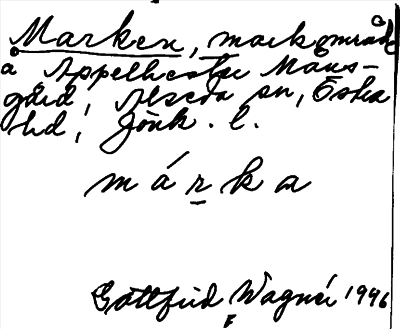 Marken, markområde
å Appelhestra Måns-
gård, Alseda sn, Östra
hd, Jönk. l.
m á r k a
Gottfrid Wagnér 1946